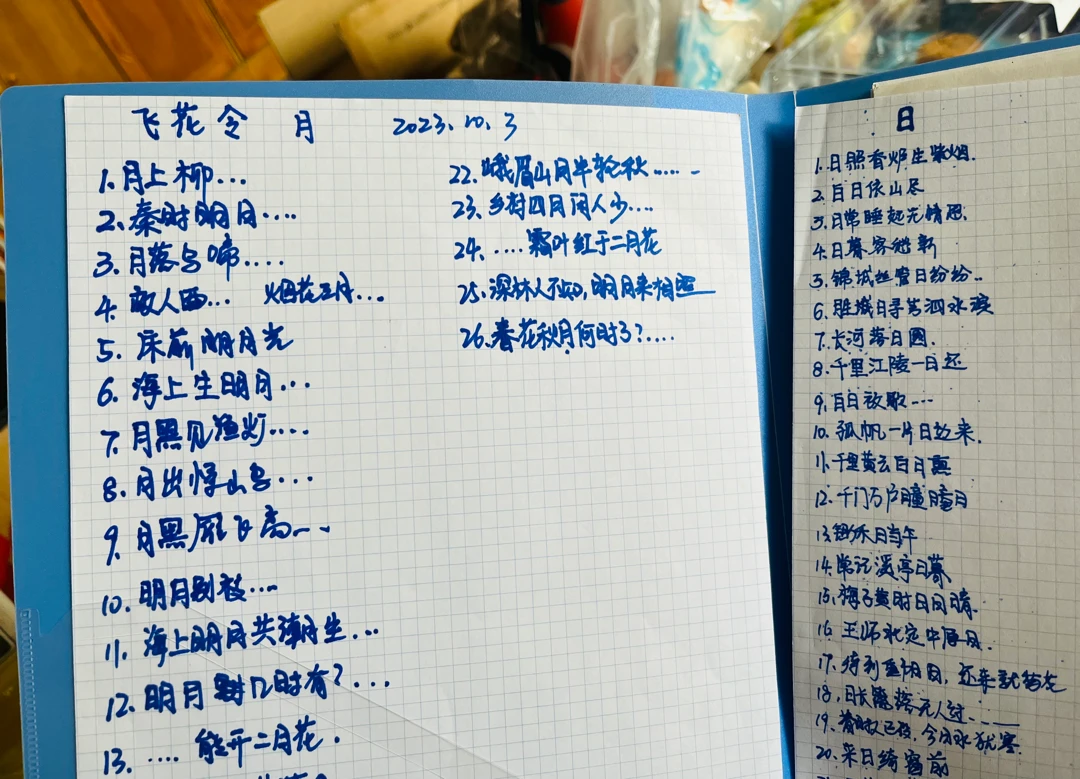 飞花令 月 2023.10.3
1.月上柳...
2.秦时明月....
3.月落乌啼....
4.故人西... 烟花三月...
5.床前明月光
6.海上生明月...
7.月黑见渔灯....
8.月出惊山鸟....
9.月黑雁飞高...
10.明月别枝....
11.海上明月共潮生...
12.明月几时有?...
13.....能开二月花.
22.峨眉山月半轮秋......
23.乡村四月闲人少....
24.....霜叶红于二月花
25.深林人不知,明月来相照
26.春花秋月何时了?....
日
1.日照香炉生紫烟.
2.白日依山尽
3.日常睡起无情思.
4.日暮客愁新
5.锦城丝管日纷纷..
6.胜日寻芳泗水滨
7.长河落日圆.
8.千里江陵一日还
9.白日放歌...
10.孤帆一片日边来.
11.千里黄云白日熏
12.千门万户曈曈日
13.锄禾日当午
14.常记溪亭日暮
15.梅子黄时日日晴.
16.王师北定中原日.
17.待到重阳日,还来就菊花
18.日长篱落无人过....
19.今日水犹寒
20.来日绮窗前